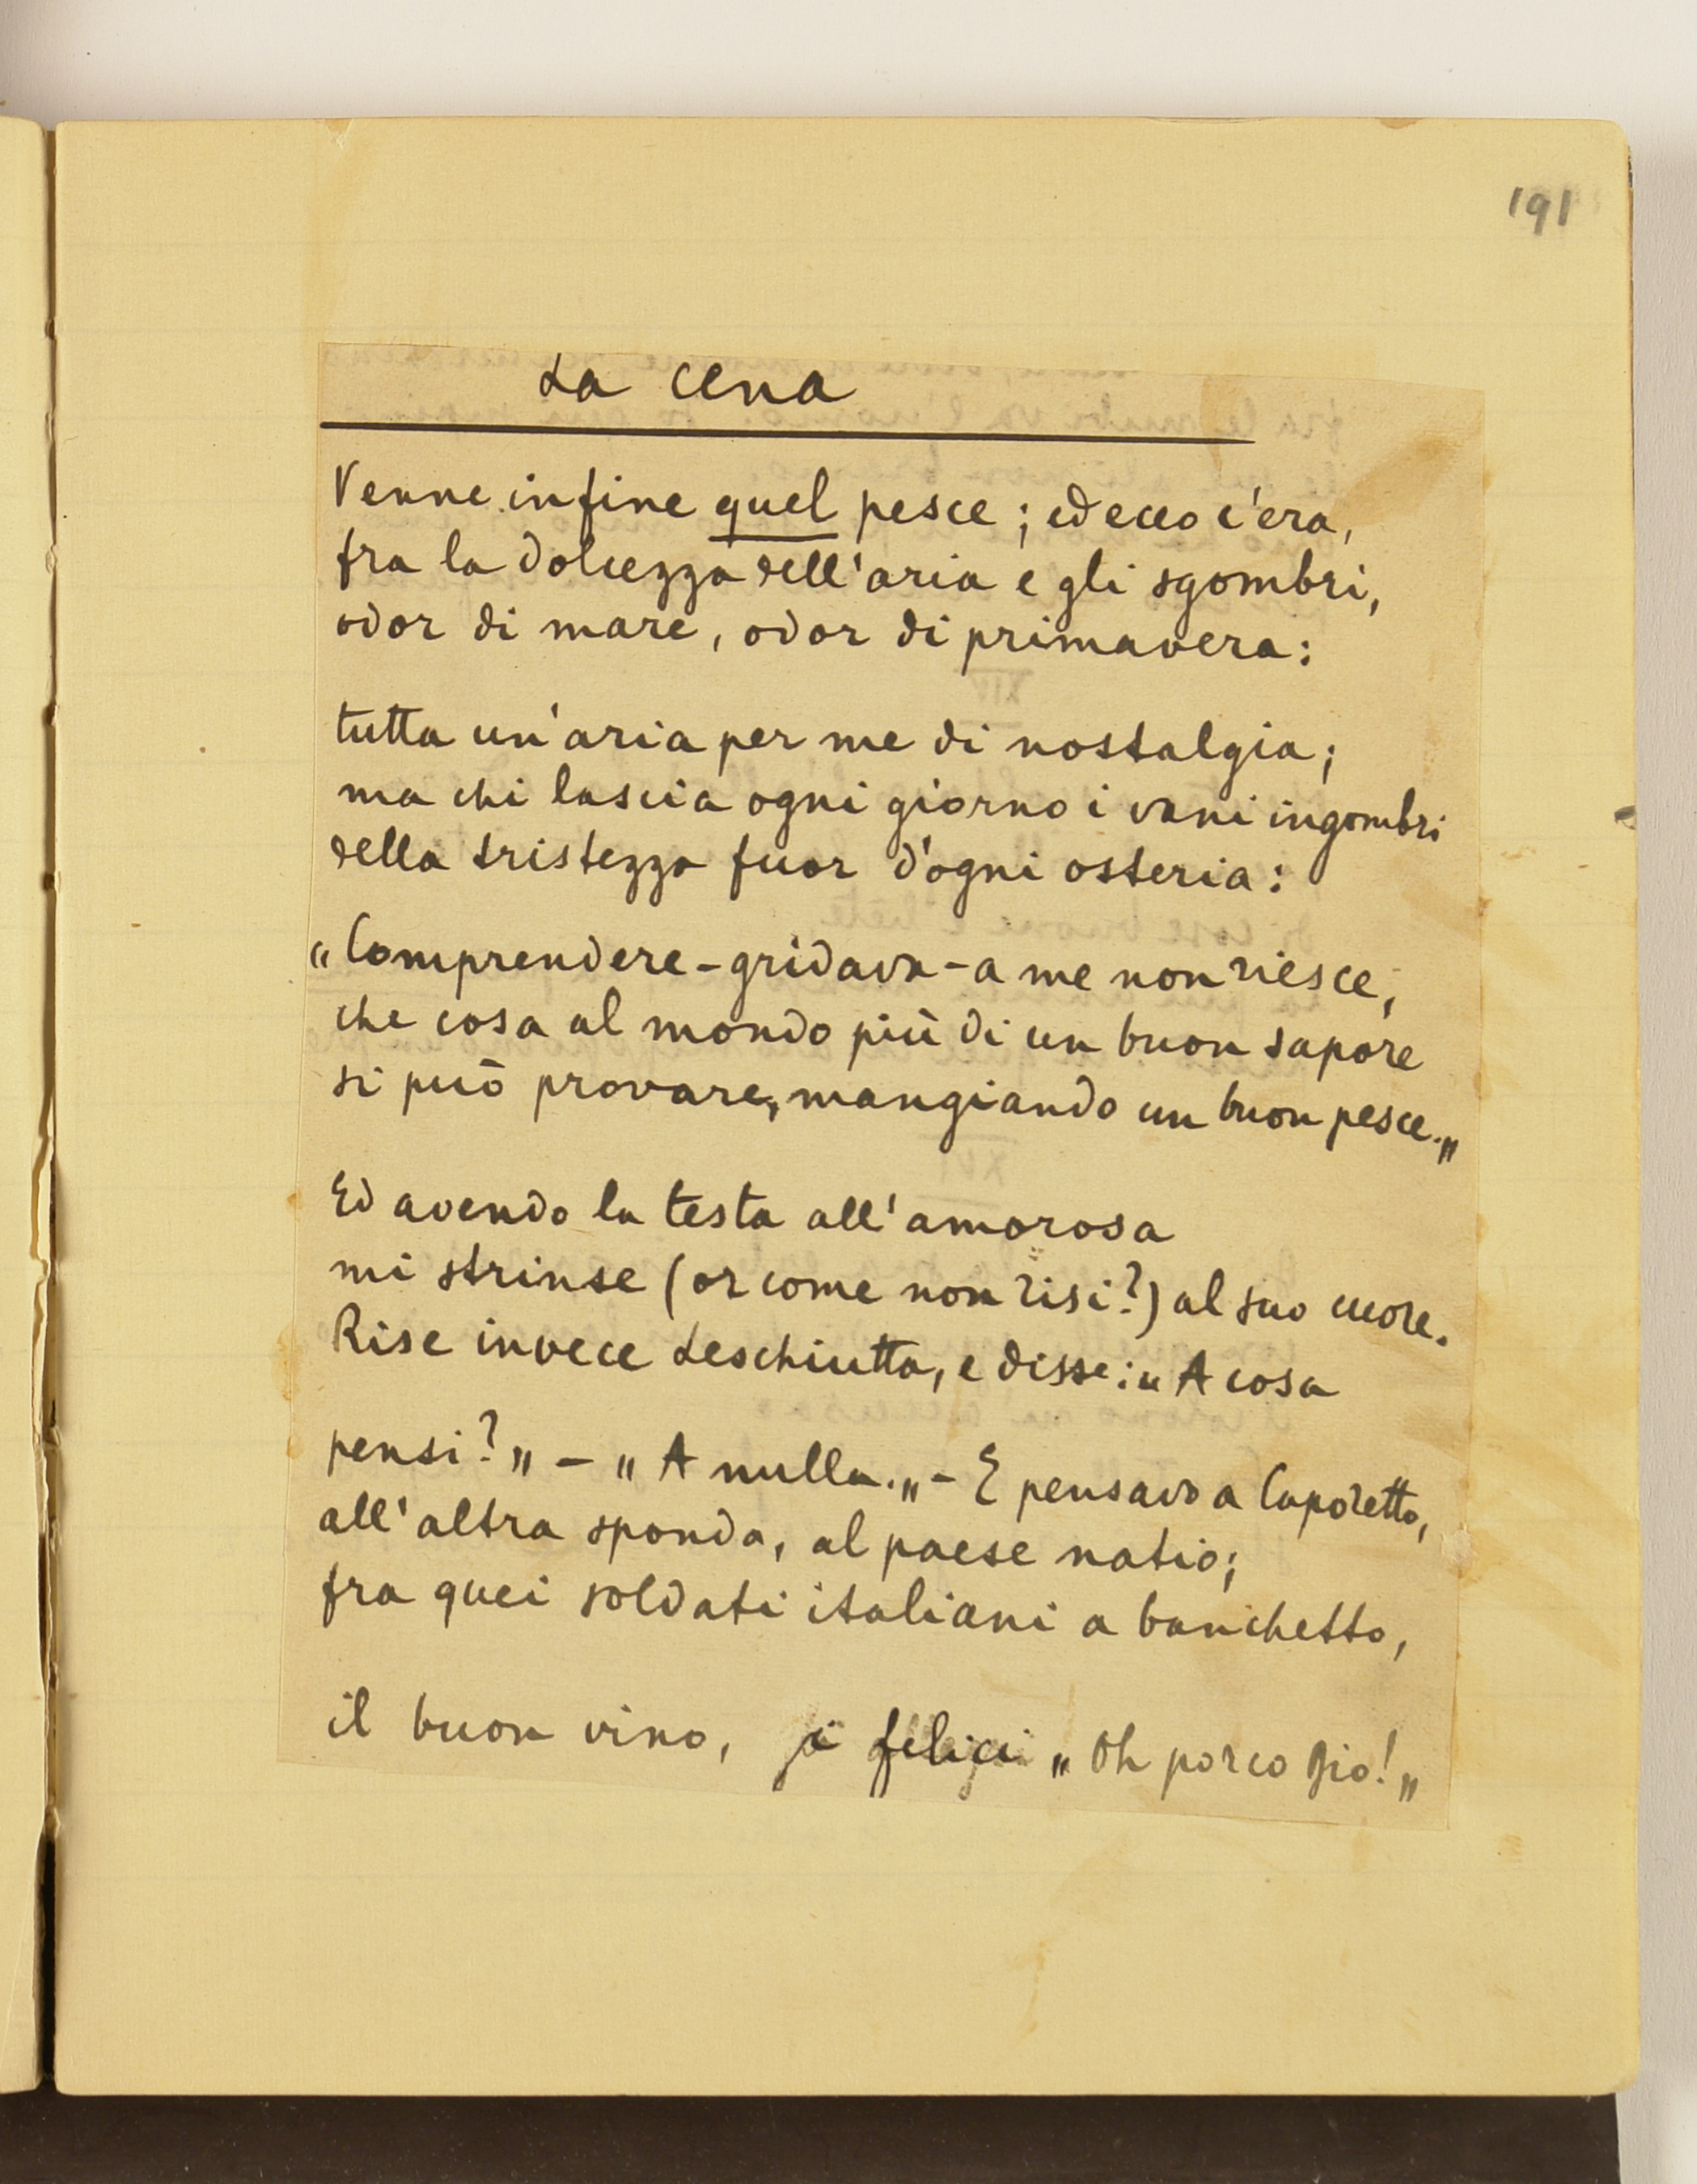 191
La cena
Venne infine quel pesce; ed ecco c'era,
fra la dolcezza dell'aria e gli sgombri,
odor di mare, odor di primavera:
tutta un'aria per me di nostalgia;
ma chi lascia ogni giorno i vani ingombri
della tristezza fuor d'ogni osteria:
"Comprendere - gridava - a me non riesce,
che cosa al mondo più di un buon sapore
si può provare, mangiando un buon pesce."
Ed avendo la testa all'amorosa
mi strinse (or come non risi?) al suo cuore.
Rise invece Leschiutta, e disse: "A cosa
pensi?" - "A nulla." - E pensavo a Caporetto,
all'altra sponda, al paese natio;
fra quei soldati italiani a banchetto,
il buon vino, i felici "Oh porco Dio!"